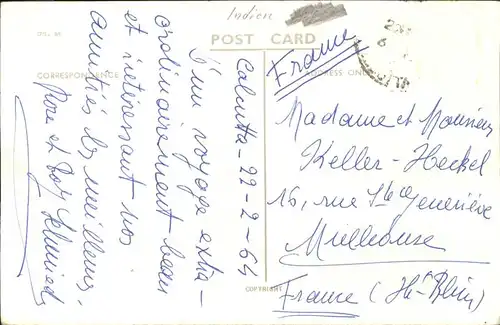 Indien
POST CARD
CORRESPONDENCE
ADDRESS ONLY
Calcutta - 22-2-64
D'un voyage extra-
ordinairement beau
et intéressant nos
amitiés les meilleures.
Rose et
France
Madame et Monsieur
Keller-Heckel
16, rue Ste Geneviève
Mulhouse
France (Ht-Rhin)
COPYRIGHT